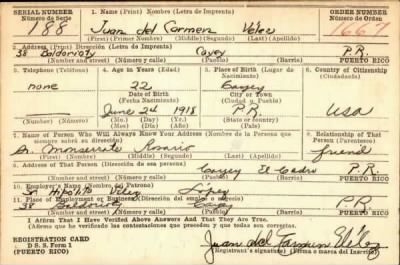 SERIAL NUMBER
Número de Serie
1. NAME (Print) Nombre (Letra de Imprenta)
ORDER NUMBER
Número de Orden
188
Juan del Carmen Vélez
1667
(First) (Primer Nombre) (Middle) (Segundo) (Last) (Apellido)
2. ADDRESS (Print) DIRECCIÓN (Letra de Imprenta)
38 Baldorioty Cayey P.R.
(Pueblo) PUERTO RICO
3. TELEPHONE (Teléfono)
4. AGE IN YEARS (Edad)
5. PLACE OF BIRTH (Lugar de Nacimiento)
6. COUNTRY OF CITIZENSHIP (Ciudadanía)
none
22
Cayey
DATE OF BIRTH
(Fecha Nacimiento)
CITY OR TOWN
(Ciudad o Pueblo)
June 24 1918
P.R.
USA
(Mo.) (Day) (Yr.)
(Número)
(Mes) (Día) (Año)
(State or country)
(País)
7. NAME OF PERSON WHO WILL ALWAYS KNOW YOUR ADDRESS (Nombre de la Persona que siempre sabrá su dirección)
8. RELATIONSHIP OF THAT PERSON (Parentesco)
Monserrate Rosario
friend
(First) (Nombre) (Middle) (Segundo) (Last) (Apellido)
9. ADDRESS OF THAT PERSON (Dirección de esa persona)
Cayey P.R.
(Pueblo) PUERTO RICO
10. EMPLOYER'S NAME (Nombre del Patrono)
Sr Hipólito Vélez López
11. PLACE OF EMPLOYMENT OR BUSINESS (Dirección del empleo o negocio)
38 Baldorioty Cayey P.R.
(Pueblo) PUERTO RICO
I AFFIRM THAT I HAVE VERIFIED ABOVE ANSWERS AND THAT THEY ARE TRUE.
(Afirmo que he verificado las contestaciones que preceden y que todas son correctas.)
REGISTRATION CARD
D. S. S. Form 1
PUERTO RICO
Juan del Carmen Vélez
(Registrant's signature) (Firma o marca del Inscrito)